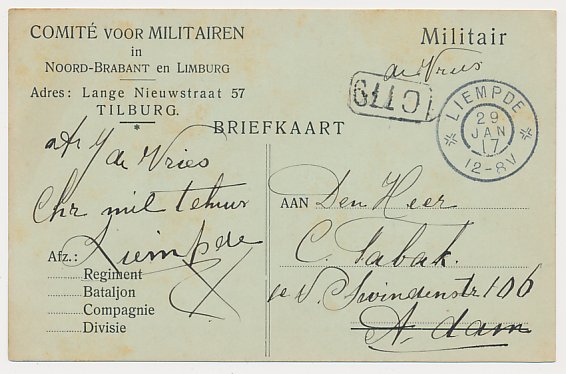 COMITÉ VOOR MILITAIREN
in
NOORD-BRABANT en LIMBURG
Adres: Lange Nieuwstraat 57
TILBURG.
*
Militair
de Vries
OTTO
LIEMPDE
29
JAN
17
12-8V
BRIEFKAART
de Vries
Chr mil tehuis
Liempde
Afz.:
Regiment
Bataljon
Compagnie
Divisie
AAN Den Heer
C. Tabak.
Swindenstr 106
A.dam